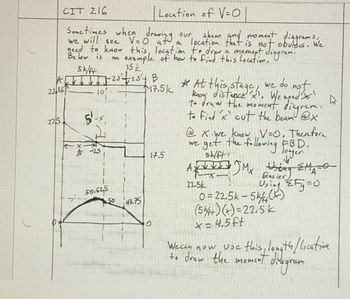 CIT 216
Location of V=0
Sometimes when drawing our shear and moment diagrams,
we will see V=0 at a location that is not obvious. We
need to know this location to draw a moment diagram.
Below is an example of how to find this location.
5k/ft
15k
A
2.5'
2.5'
B
22.5k
10'
17.5k
* At this stage, we do not
know distance "x". We need "x"
to draw the moment diagram.
to find "x" cut the beam @x
22.5
5'
x
-2.5
17.5
@ x we know V=0. Therefore
we get the following FBD.
5k/ft
longer
A
x
Mx
Using ΣMA=0
22.5k
Easier
Using ΣFy=0
0=22.5k-5k/ft(x)
(5k/ft)(x)=22.5k
x=4.5ft
50.625
50
43.75
0
0
We can now use this length/location
to draw the moment diagram